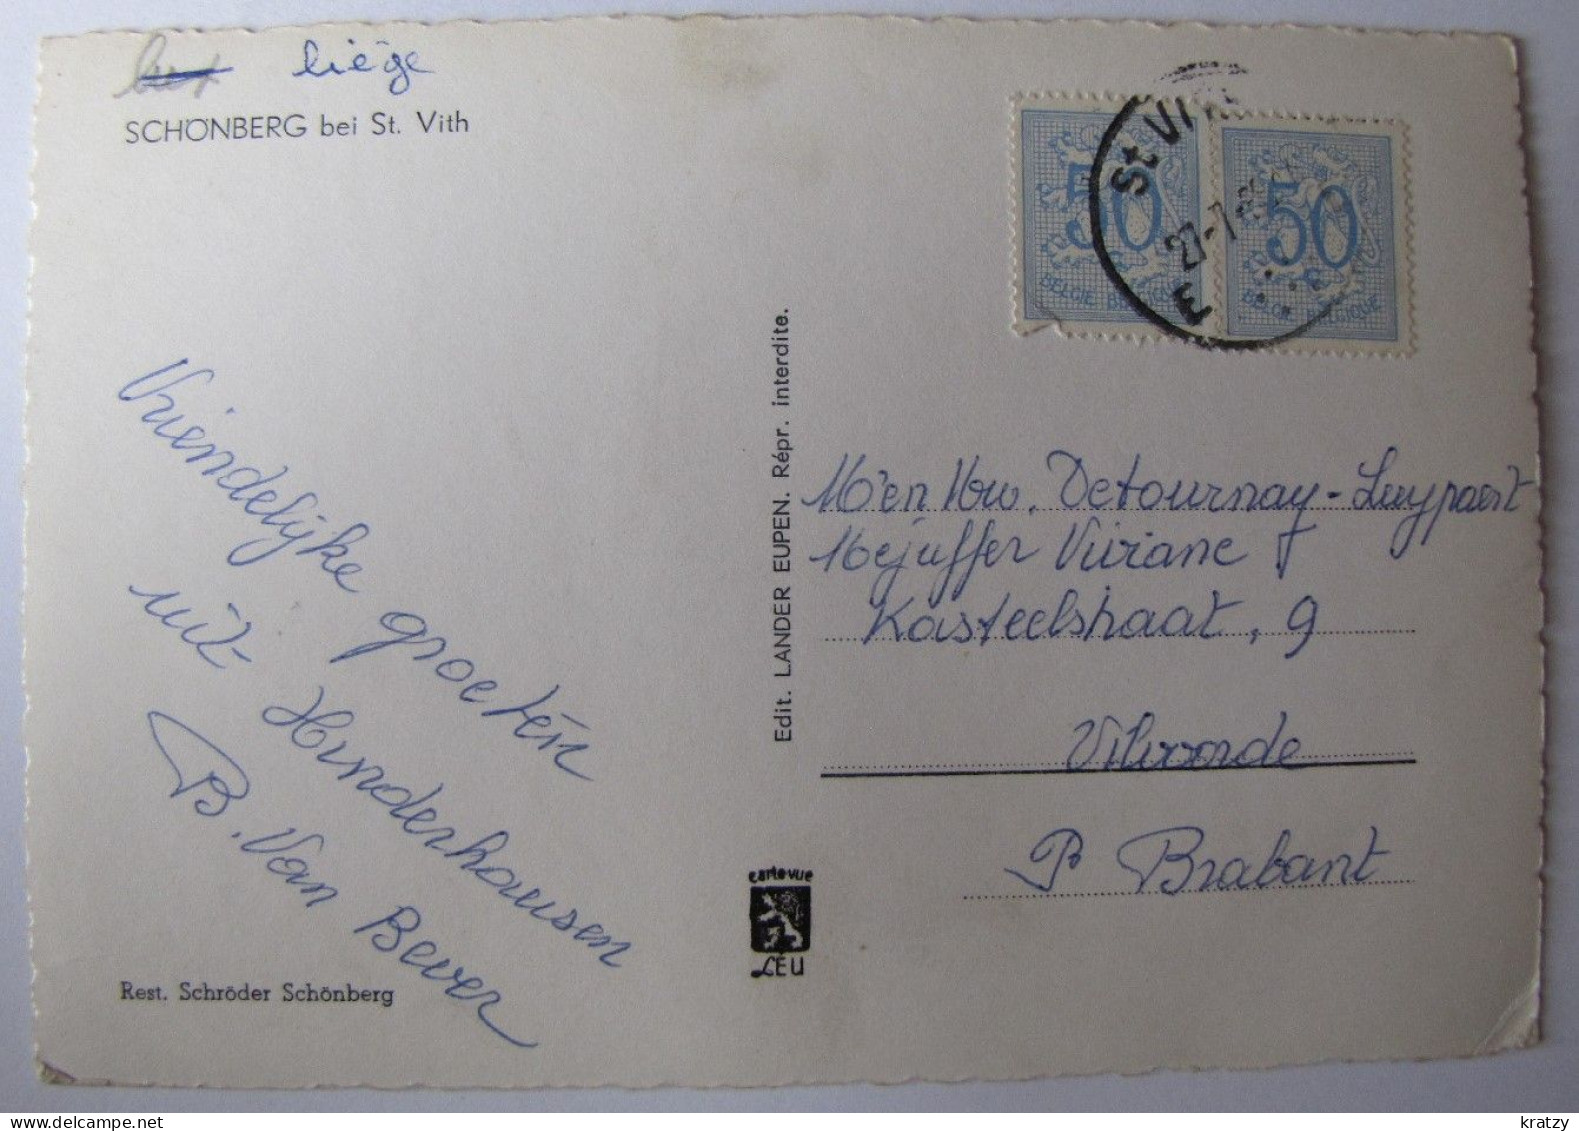 liège
SCHÖNBERG bei St. Vith
St VITH
27-7
E
50
BELGIE BELGIQUE
50
BELGIE BELGIQUE
Vriendelijke groeten
uit Hunderhausen
B. Van Bever
Rest. Schröder Schönberg
Edit. LANDER EUPEN. Répr. interdite.
carte vue
LÉU
M'en Mw. Detournay-Luypaert
Mejuffer Viviane
Kasteelstraat, 9
Vilvorde
P Brabant
www.delcampe.net
kratzy